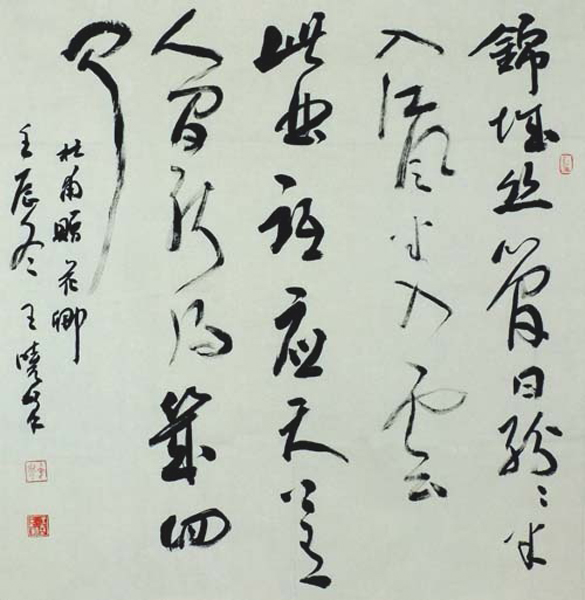 錦城丝管日紛〻半
入江風半入雲
此曲祇應天上有
人間能得幾回
聞
杜甫贈花卿
壬辰冬 王曉